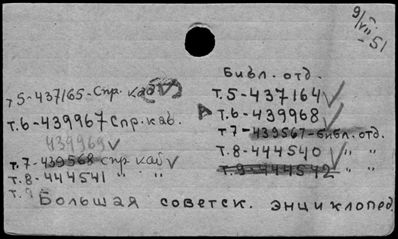 6/VII 51
Библ. отд.
т.5-437165-Спр. каб
т.5-437164
т.6-439967 Спр. каб.
т.6-439968
439969
т.7-439567-библ. отд.
т.7-439568 спр каб
т.8-444540 " "
т.8-444541 " "
т.9-444542 " "
т.9
Большая советск. энциклопед.